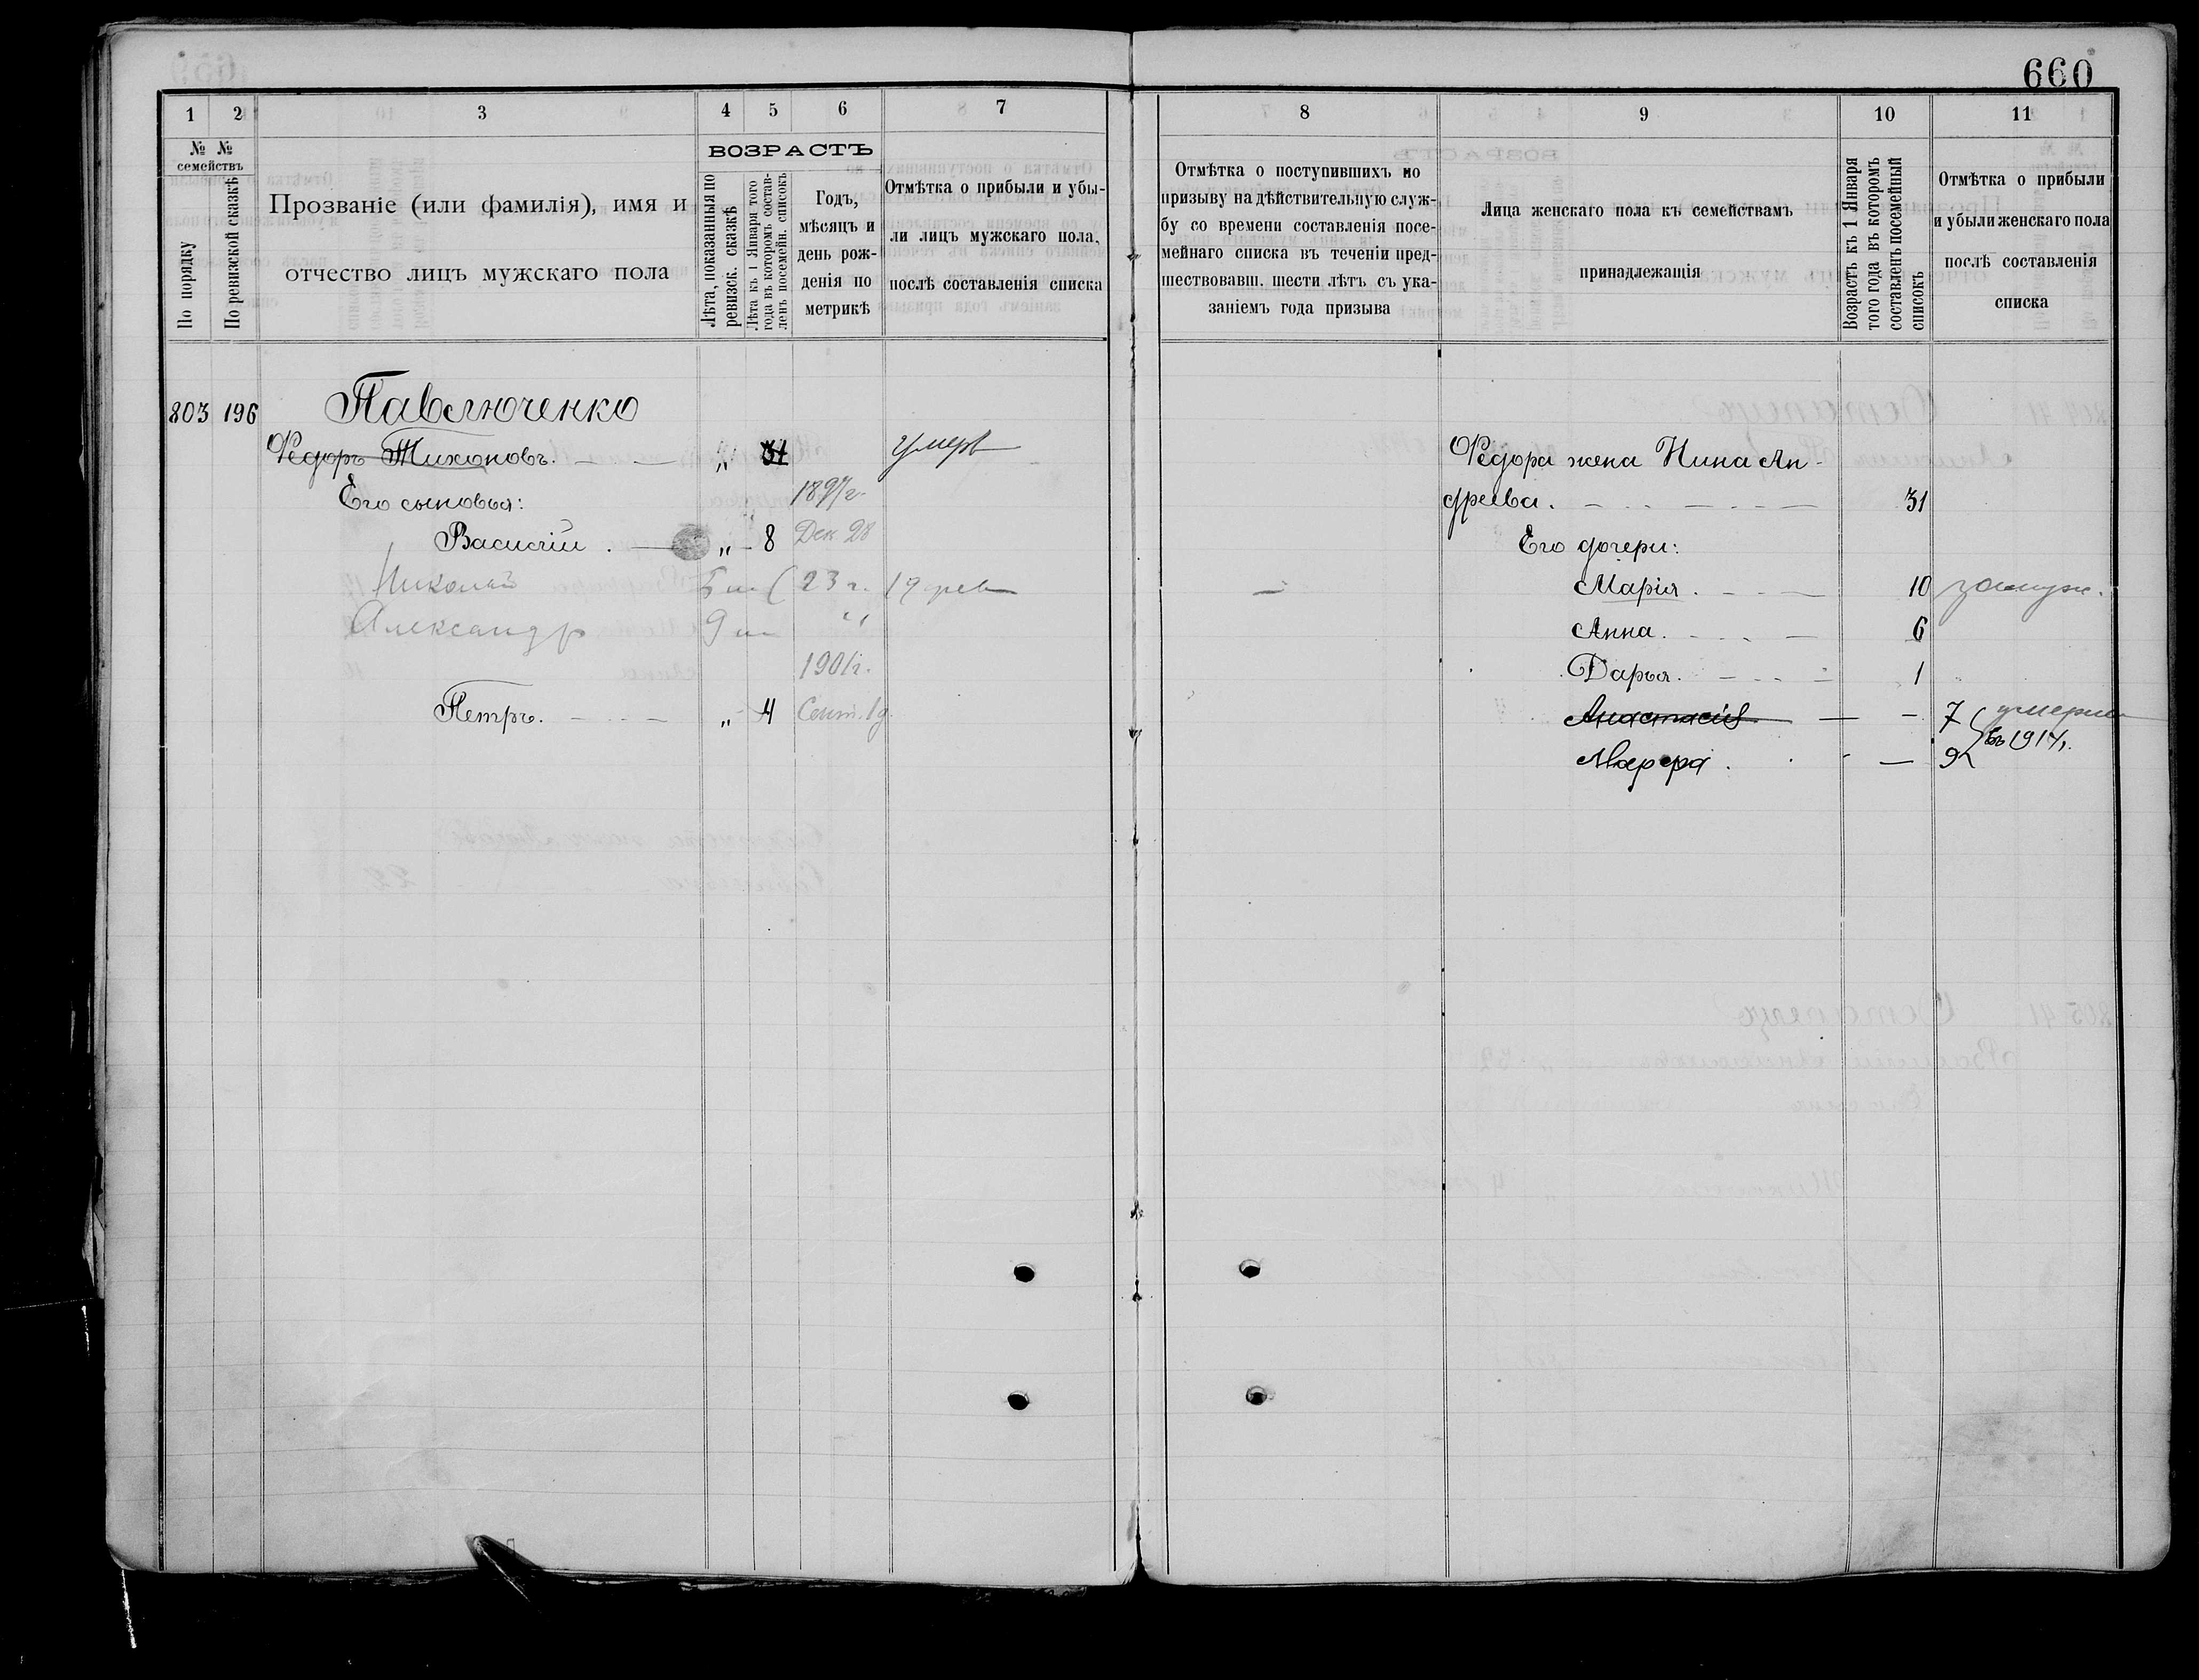 660
1 2 3 4 5 6 7
№ №
семействъ
По порядку
По ревизской сказкѣ
Прозваніе (или фамилія), имя и
отчество лицъ мужскаго пола
ВОЗРАСТЪ
Лѣта, показанныя по
ревизск. сказкѣ
Лѣта къ 1 Января того
года въ которомъ состав-
ленъ посемейн. списокъ
Годъ,
мѣсяцъ и
день рож-
денія по
метрикѣ
Отмѣтка о прибыли и убы-
ли лицъ мужскаго пола,
послѣ составленія списка
803 196 Павлюченко
Ѳедоръ Тихоновъ. „ 31 умеръ
Его сыновья: 1897г.
Василій „ 8 Дек 28
Николай 5 23 г.
Александр 9 "
1901г.
Петръ. „ 4 Сент. 19
8 9 10 11
Отмѣтка о поступившихъ по
призыву на дѣйствительную служ-
бу со времени составленія посе-
мейнаго списка въ теченіи пред-
шествовавш. шести лѣтъ съ ука-
заніемъ года призыва
Лица женскаго пола къ семействамъ
принадлежащія
Возрастъ къ 1 Января
того года въ которомъ
составленъ посемейный
списокъ
Отмѣтка о прибыли
и убыли женскаго пола
послѣ составленія
списка
Ѳедора жена Нина Ан-
дреева. 31
Его дочери:
Марія. 10 замуж.
Анна. 6
Дарья. 1
Анастасія 7 умерла
въ 1914г.
Марфа. 9